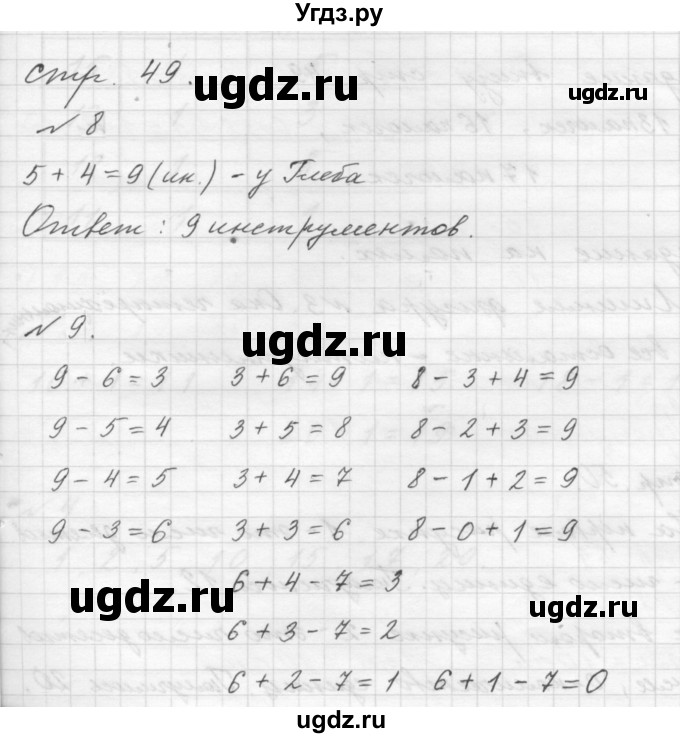 Угдз.ру
стр. 49.
ugdz.ru
№ 8
5 + 4 = 9 (ин.) - у Глеба
Ответ: 9 инструментов.
№ 9.
ugdz.ru
9 - 6 = 3 3 + 6 = 9 8 - 3 + 4 = 9
9 - 5 = 4 3 + 5 = 8 8 - 2 + 3 = 9
9 - 4 = 5 3 + 4 = 7 8 - 1 + 2 = 9
9 - 3 = 6 3 + 3 = 6 8 - 0 + 1 = 9
6 + 4 - 7 = 3
ugdz.ru
ugdz.ru
6 + 3 - 7 = 2
6 + 2 - 7 = 1 6 + 1 - 7 = 0
ugdz.ru